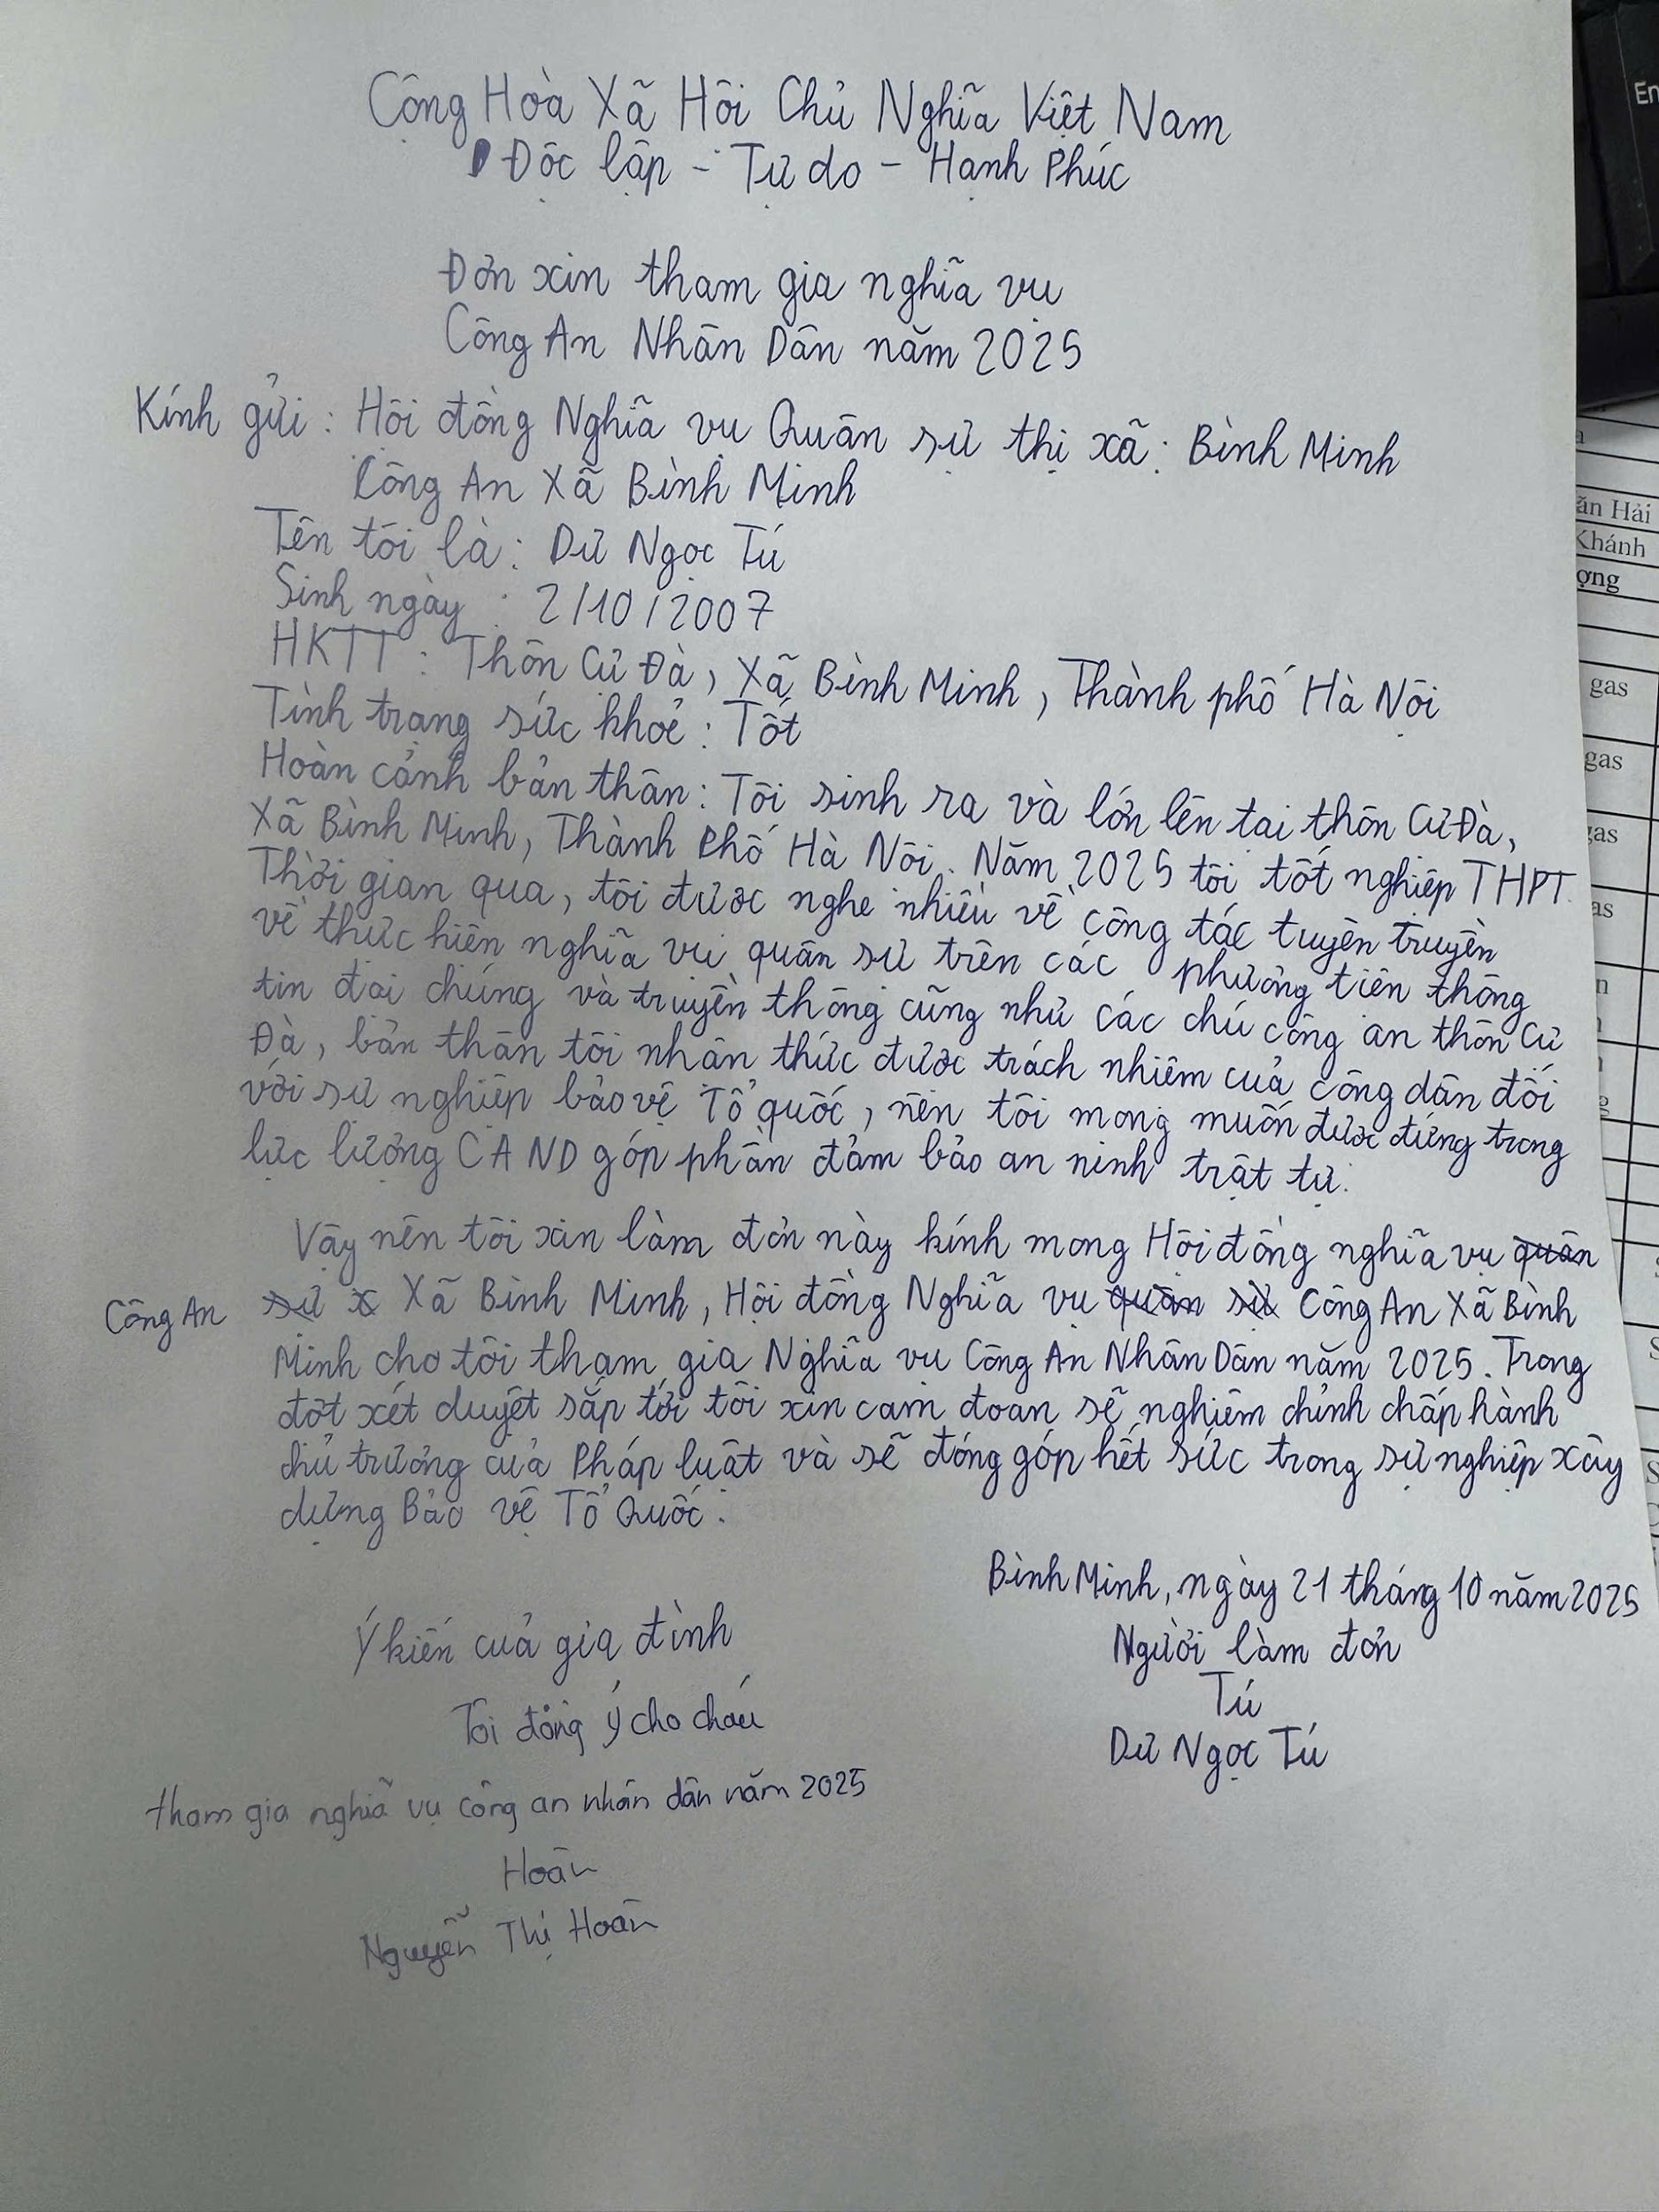 Cộng Hoà Xã Hội Chủ Nghĩa Việt Nam
Độc lập - Tự do - Hạnh Phúc
Đơn xin tham gia nghĩa vụ
Công An Nhân Dân năm 2025
Kính gửi : Hội đồng Nghĩa vụ Quân sự thị xã : Bình Minh
Công An Xã Bình Minh
Tên tôi là : Dư Ngọc Tú
Sinh ngày : 2/10/2007
HKTT : Thôn Cự Đà, Xã Bình Minh, Thành phố Hà Nội
Tình trạng sức khoẻ : Tốt
Hoàn cảnh bản thân : Tôi sinh ra và lớn lên tại thôn Cự Đà,
Xã Bình Minh, Thành Phố Hà Nội. Năm 2025 tôi tốt nghiệp THPT.
Thời gian qua, tôi được nghe nhiều về công tác tuyên truyền
về thực hiện nghĩa vụ quân sự trên các phương tiện thông
tin đại chúng và truyền thông cũng như các chú công an thôn Cự
Đà, bản thân tôi nhận thức được trách nhiệm của công dân đối
với sự nghiệp bảo vệ Tổ quốc, nên tôi mong muốn được đứng trong
lực lượng CAND góp phần đảm bảo an ninh trật tự.
Vậy nên tôi xin làm đơn này kính mong Hội đồng nghĩa vụ quân
Công An sự x Xã Bình Minh, Hội đồng Nghĩa vụ quân sự Công An Xã Bình
Minh cho tôi tham gia Nghĩa vụ Công An Nhân Dân năm 2025. Trong
đợt xét duyệt sắp tới tôi xin cam đoan sẽ nghiêm chỉnh chấp hành
chủ trương của Pháp luật và sẽ đóng góp hết sức trong sự nghiệp xây
dựng Bảo vệ Tổ Quốc.
Bình Minh, ngày 21 tháng 10 năm 2025
Người làm đơn
Tú
Dư Ngọc Tú
Ý kiến của gia đình
Tôi đồng ý cho cháu
tham gia nghĩa vụ công an nhân dân năm 2025
Hoàn
Nguyễn Thị Hoàn
En
ăn Hải
Khánh
ợng
gas
gas
gas